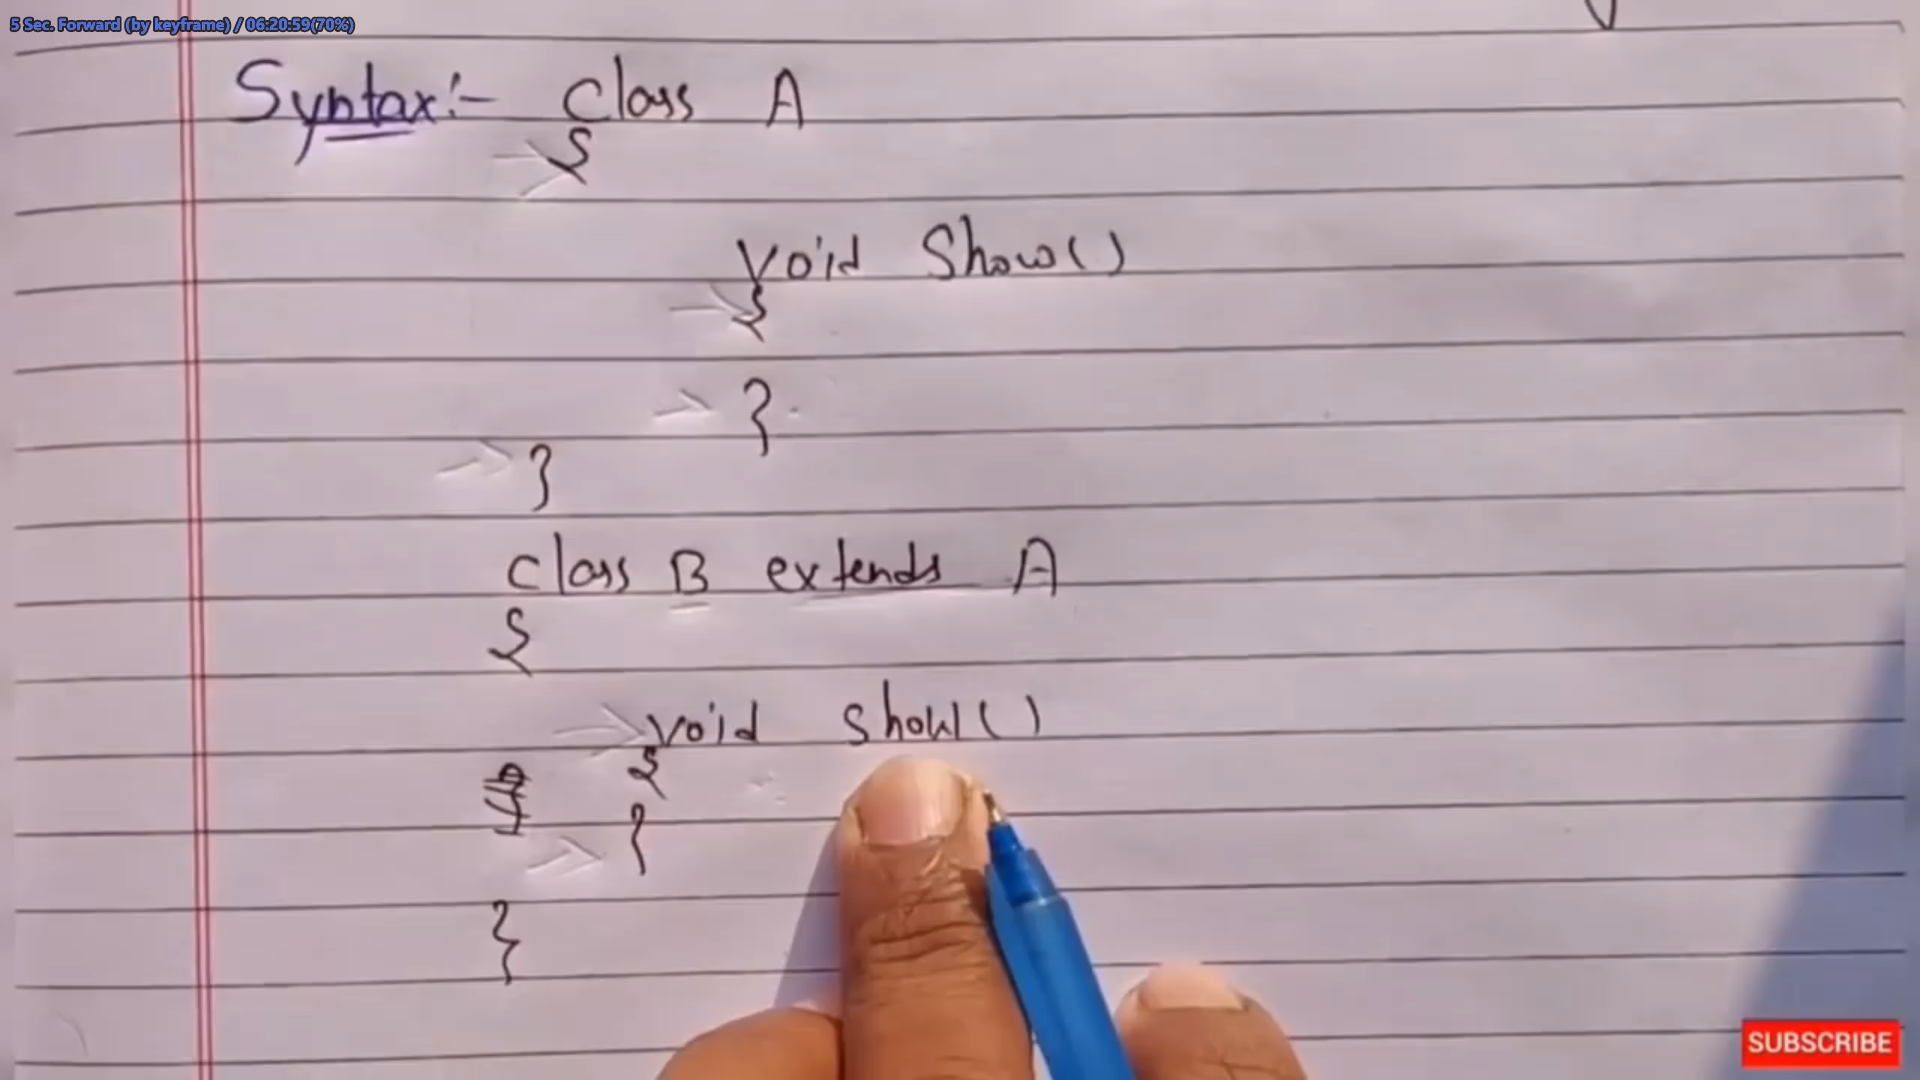 5 Sec. Forward (by keyframe) / 06:20:59(70%)
Syntax:- Class A
{
Void Show()
{
}
}
class B extends A
{
void show()
{
}
}
SUBSCRIBE